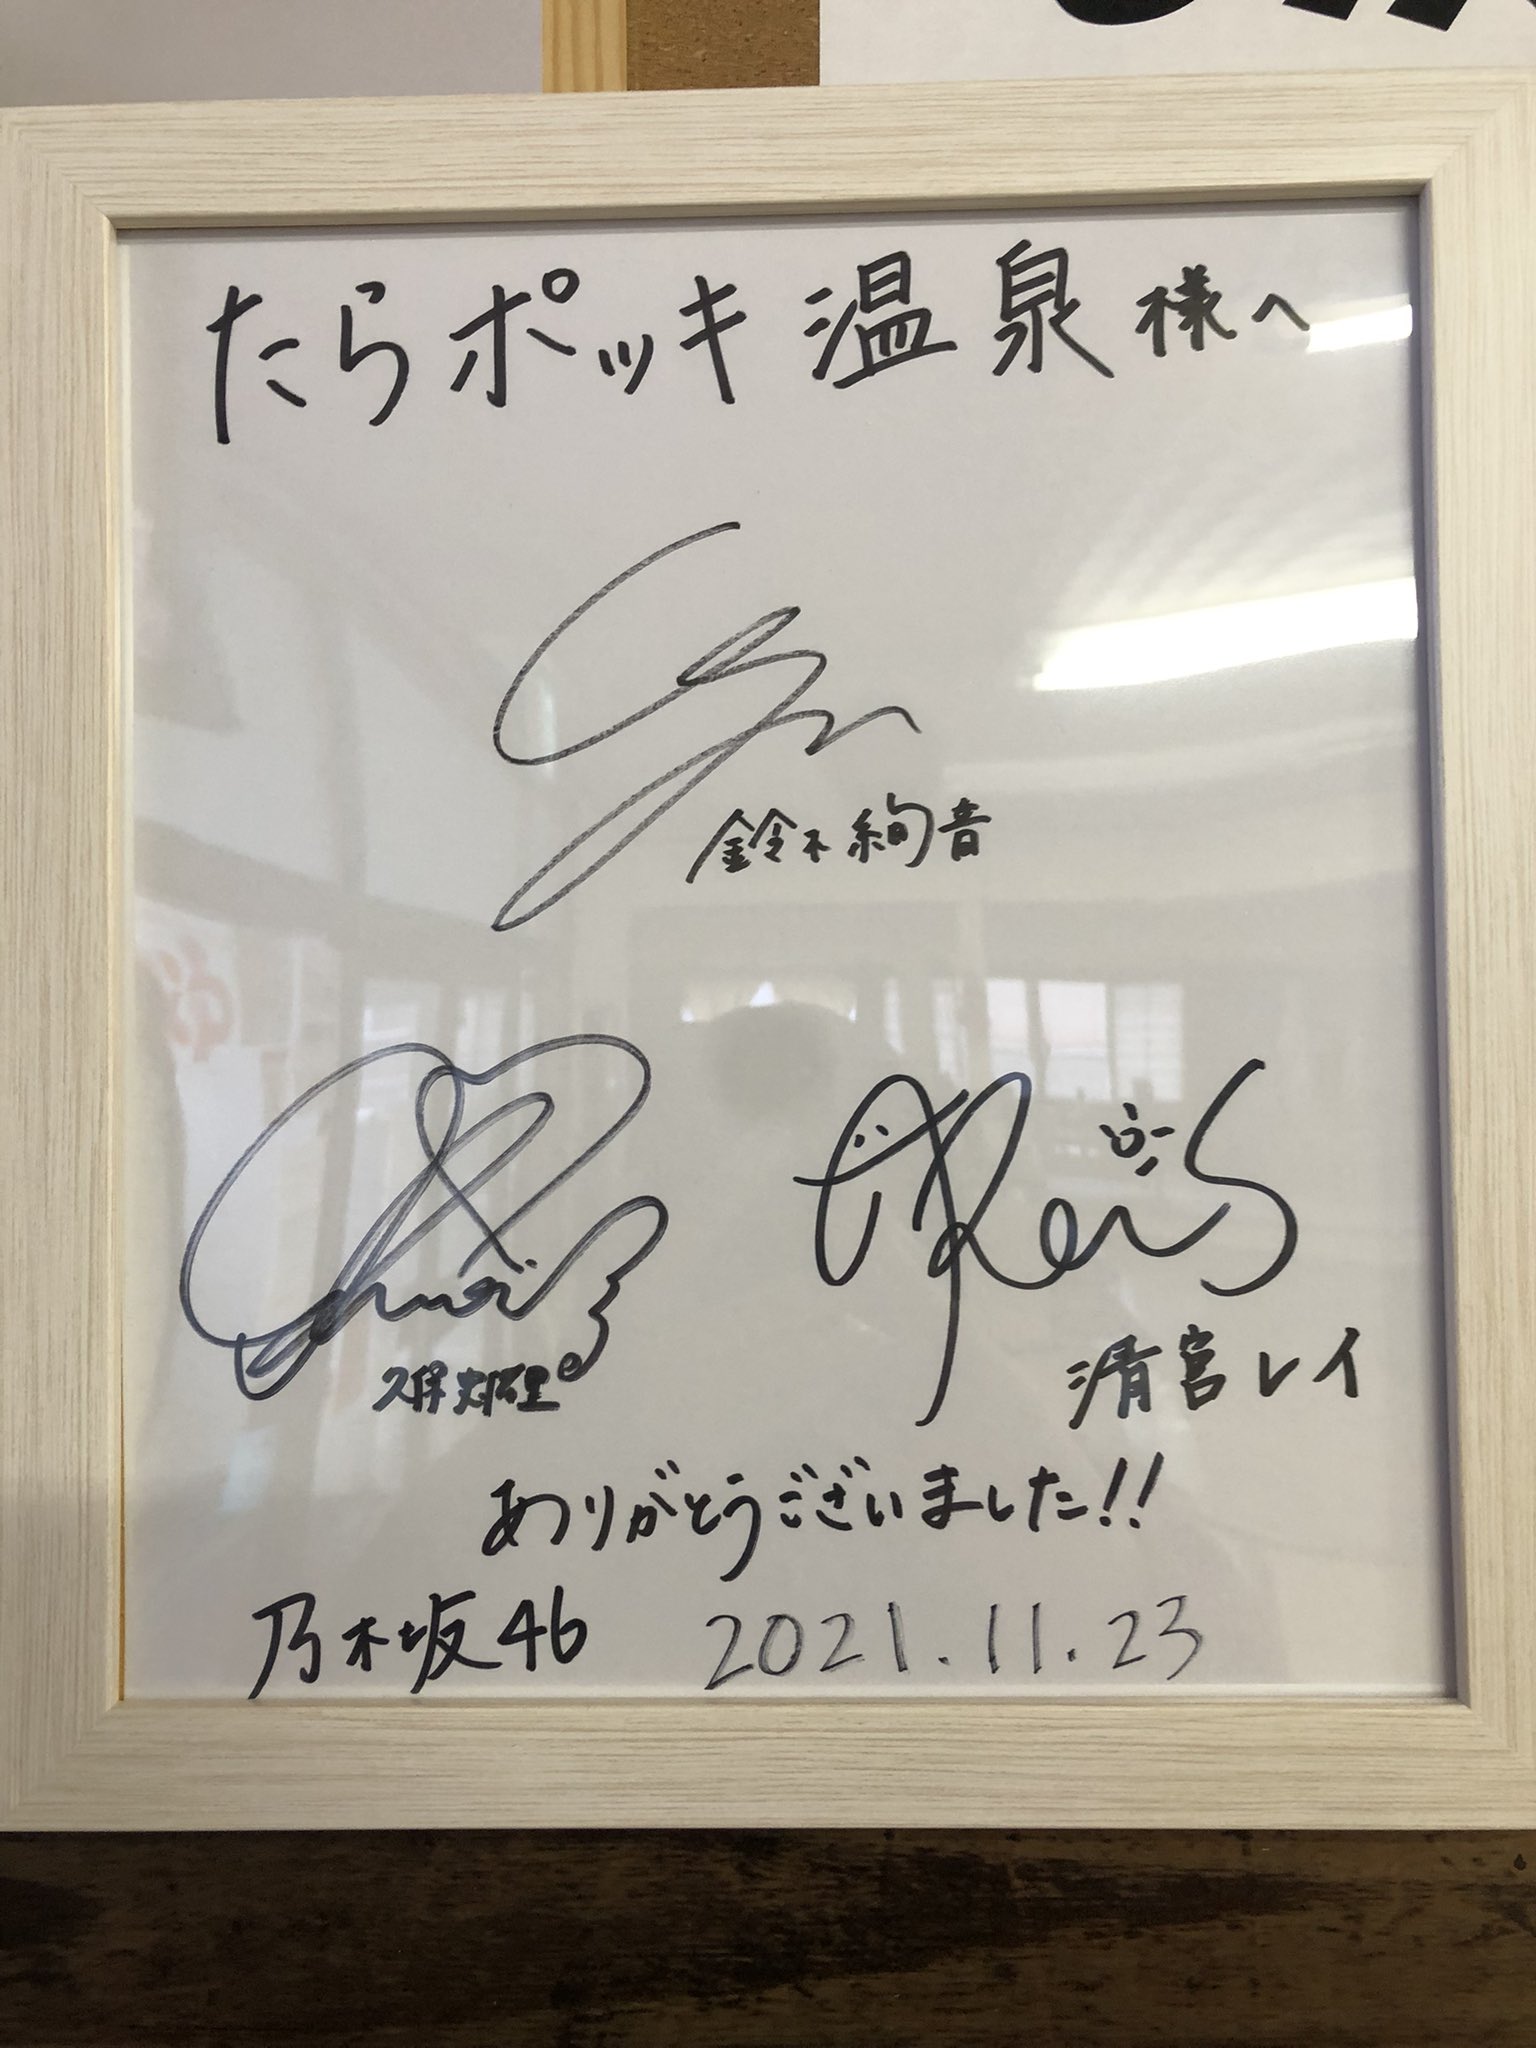 たらポッキ温泉様へ
鈴木絢音
久保史緒里
Rei
清宮レイ
ありがとうございました!!
乃木坂46 2021.11.23